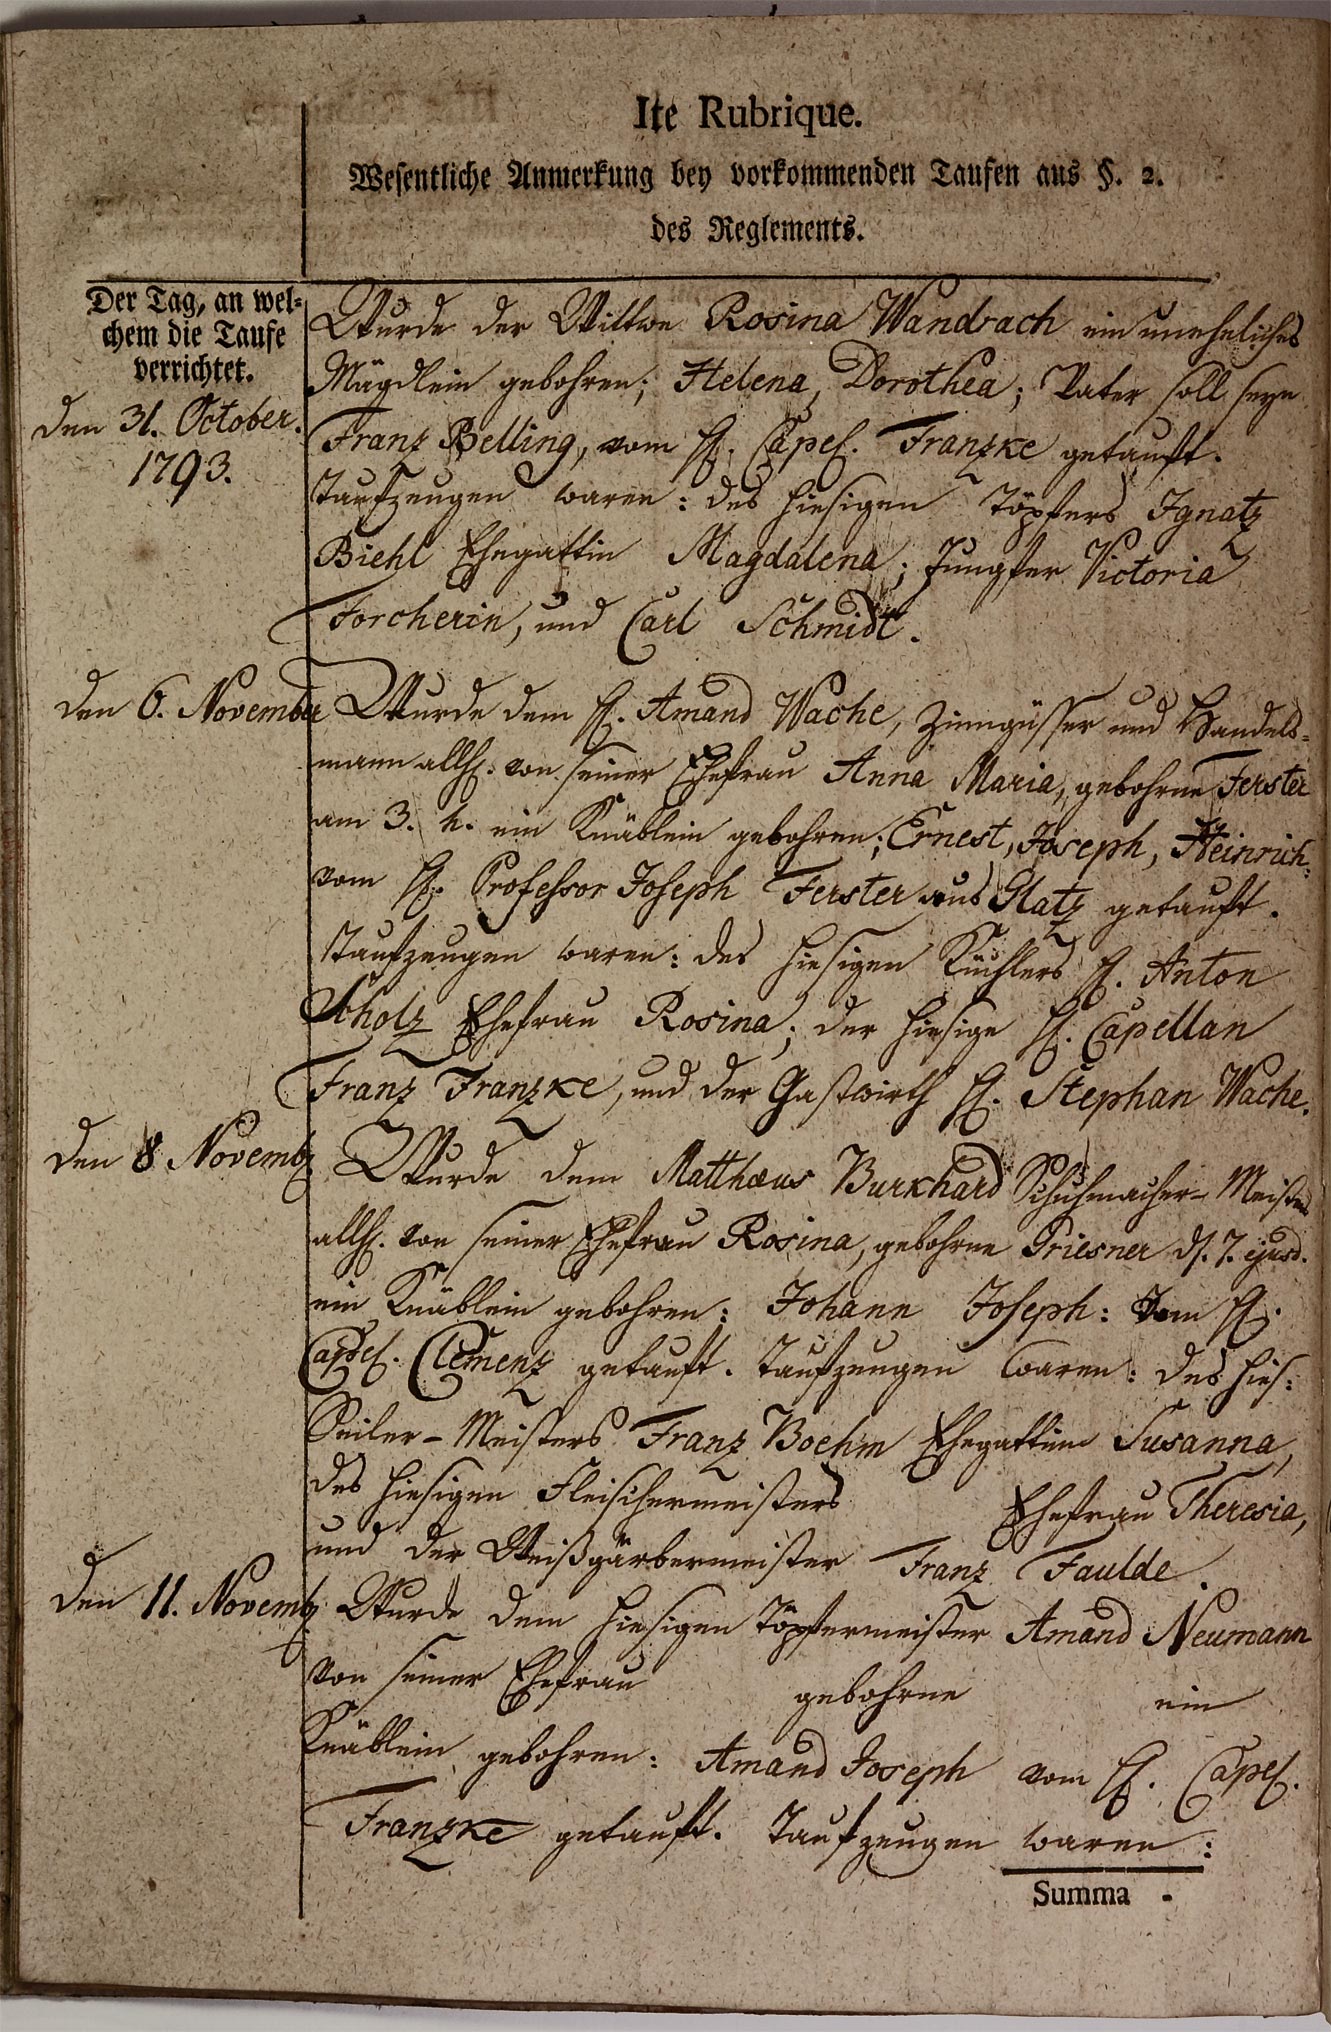 Ite Rubrique.
Wesentliche Anmerkung bey vorkommenden Taufen aus §. 2.
des Reglements.
Der Tag, an wel-
chem die Taufe
verrichtet.
den 31. October.
1793.
Wurde der Wittwe Rosina Wandrach ein uneheliches
Mägdlein gebohren; Helena, Dorothea; Vater soll seyn
Franz Belling, vom H. Capel. Franzke getauft.
Taufzeugen waren: des hiesigen Töpfers Ignatz
Biehl Ehegattin Magdalena; Jungfer Victoria
Forcherin, und Carl Schmidt.
den 6. November
Wurde dem H. Amand Wache, Zinngüsser und Handels-
mann allh. von seiner Ehefrau Anna Maria, gebohrne Ferster
am 3. h. ein Knäblein gebohren; Ernest, Joseph, Heinrich:
vom H. Professor Joseph Ferster aus Glatz getauft.
Taufzeugen waren: des hiesigen Küchlers H. Anton
Scholz Ehefrau Rosina; der hiesige H. Capellan
Franz Franzke, und der Gastwirth H. Stephan Wache.
den 8 Novemb.
Wurde dem Matthæus Burkhard Schuhmacher-Meister
allh. von seiner Ehefrau Rosina, gebohrne Priesner d. 7. ejusd.
ein Knäblein gebohren: Johann Joseph: Vom H.
Capel. Clemenz getauft. Taufzeugen waren: des hies:
Seiler-Meisters Franz Boehm Ehegattinn Susanna,
des hiesigen Fleischermeisters Ehefrau Theresia,
und der Weißgärbermeister Franz Faulde.
den 11. Novemb.
Wurde dem hiesigen Töpfermeister Amand Neumann
von seiner Ehefrau gebohrne ein
Knäblein gebohren: Amand Joseph vom H. Capel.
Franzke getauft. Taufzeugen waren:
Summa -